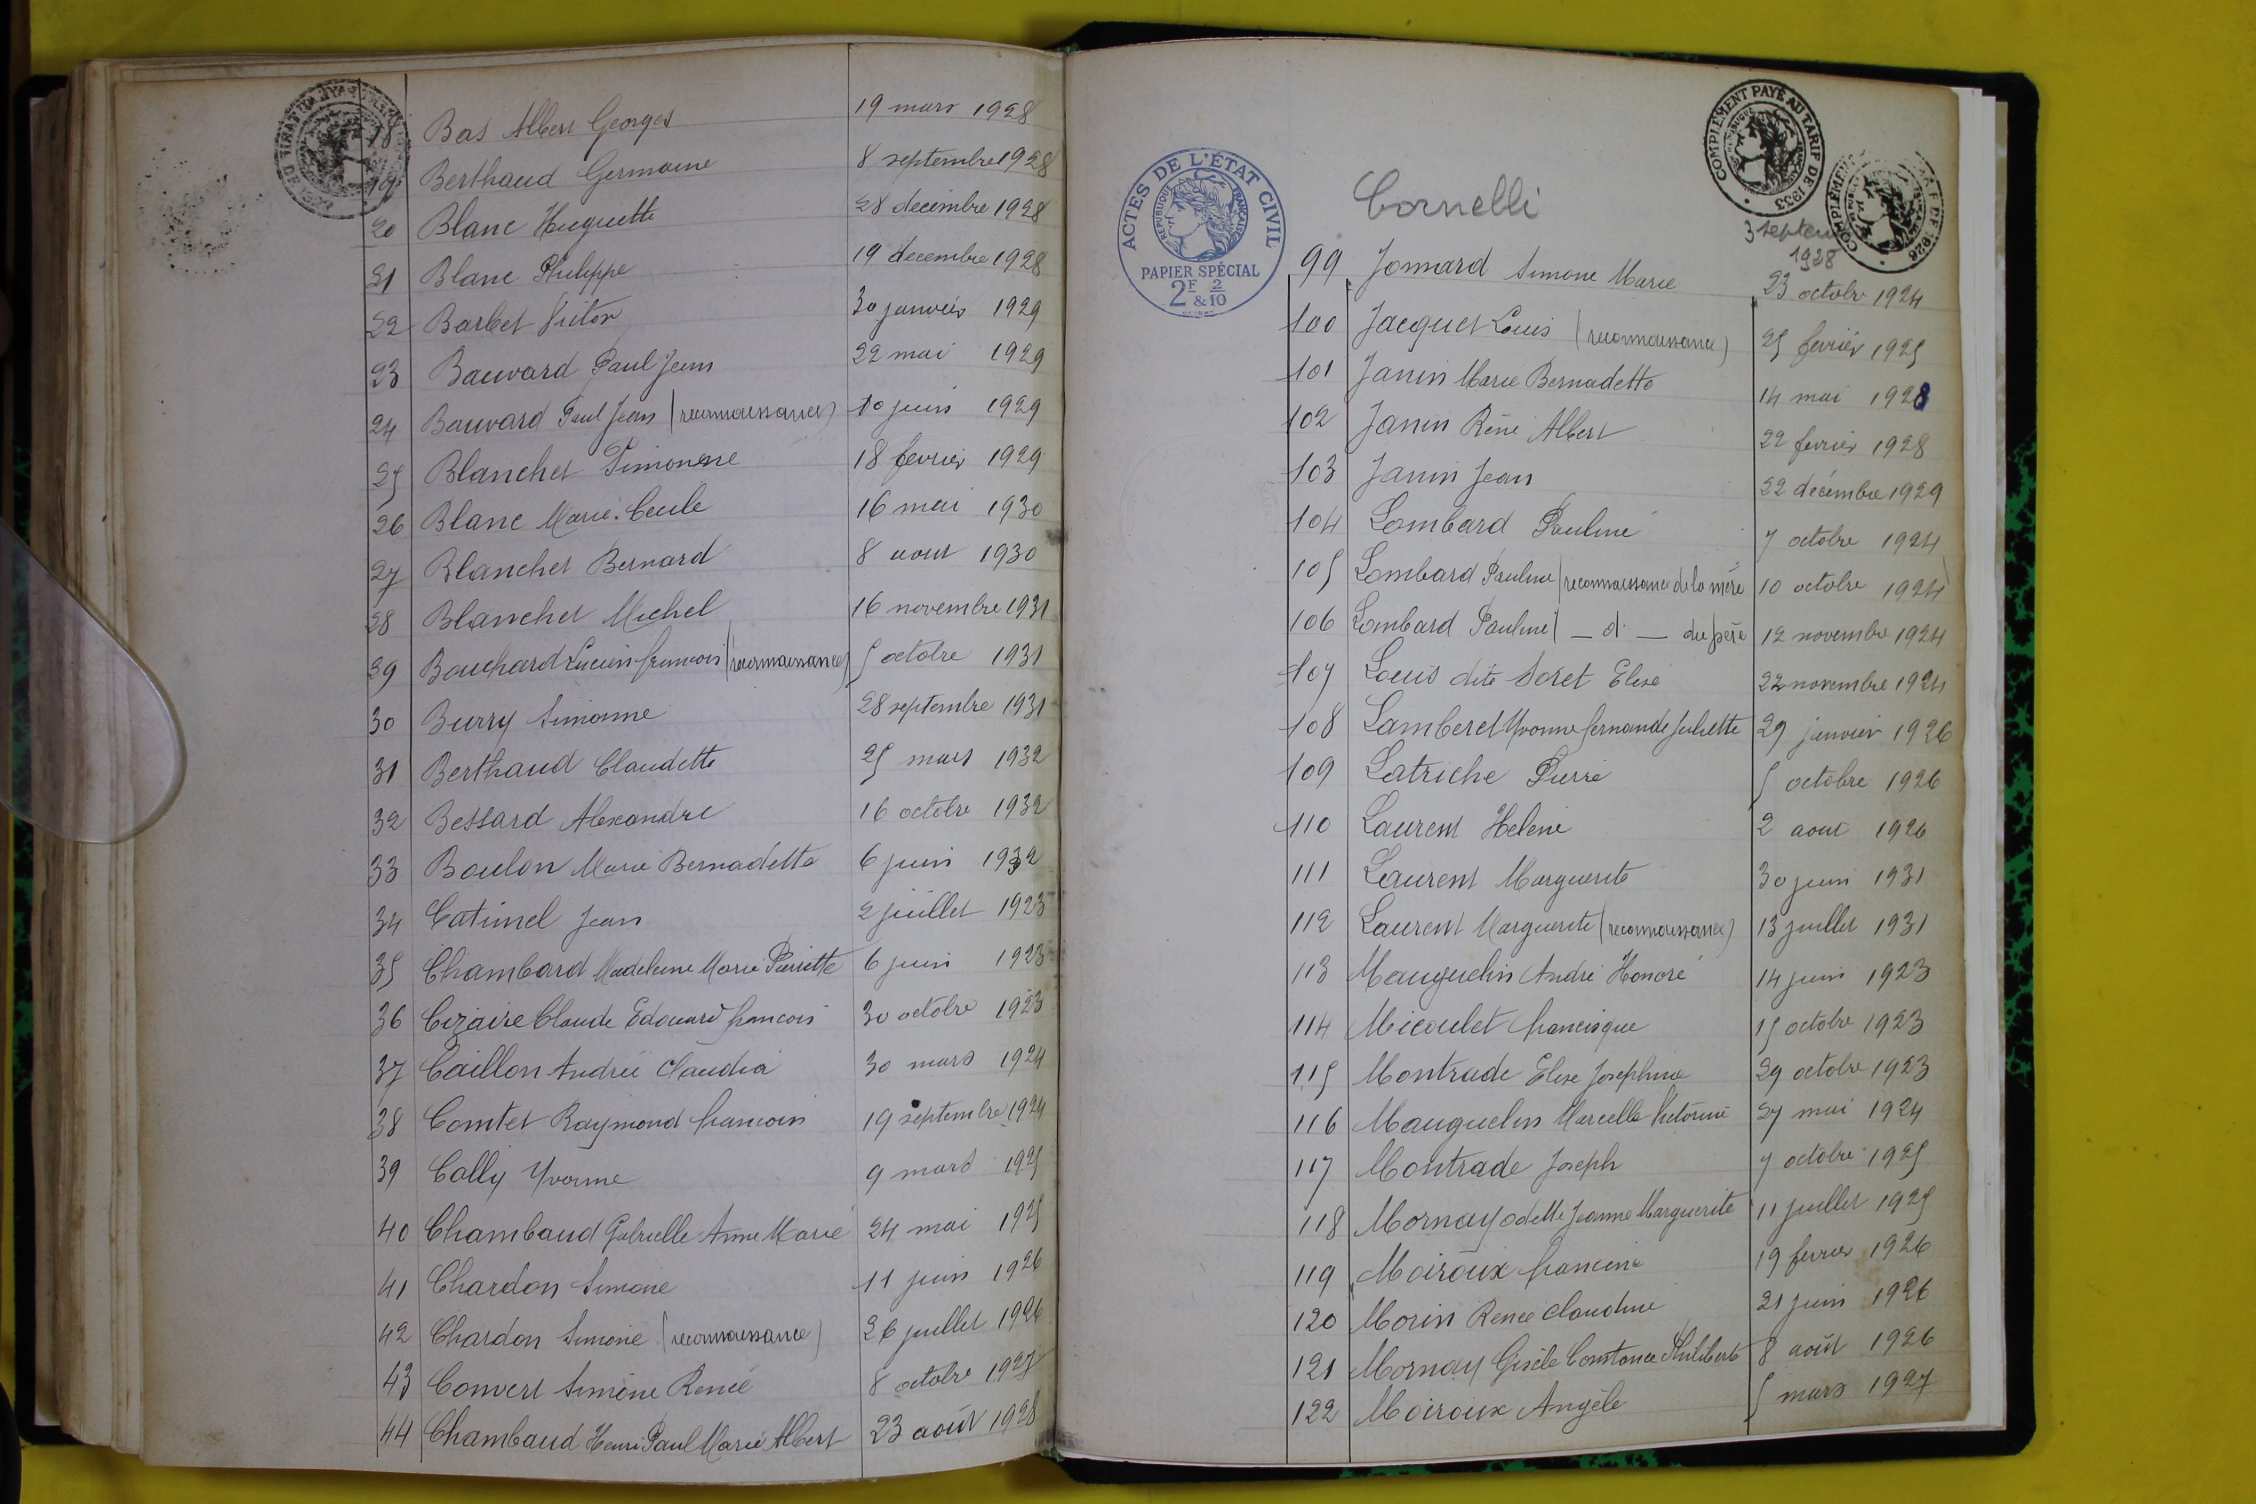 18 Bas Albert Georges 19 mars 1928
19 Berthaud Germaine 8 septembre 1928
20 Blanc Huguette 28 décembre 1928
21 Blanc Philippe 19 decembre 1928
22 Barbet Victor 30 janvier 1929
23 Bauvard Paul Jean 22 mai 1929
24 Bauvard Paul Jean (reconnaissance) 10 juin 1929
25 Blanchet Simonne 18 fevrier 1929
26 Blanc Marie-Cecile 16 mai 1930
27 Blanchet Bernard 8 aout 1930
28 Blanchet Michel 16 novembre 1931
29 Bouchard Lucien francois (reconnaissance) 5 octobre 1931
30 Burry Simonne 28 septembre 1931
31 Berthaud Claudette 25 mars 1932
32 Bessard Alexandre 16 octobre 1932
33 Boulon Marie Bernadette 6 juin 1932
34 Catimel Jean 2 juillet 1923
35 Chambard Madeleine Marie Pierrette 6 juin 1923
36 Cizaire Claude Edouard francois 30 octobre 1923
37 Caillon Andrée Claudia 30 mars 1924
38 Comtet Raymond francois 19 septembre 1924
39 Colly Yvonne 9 mars 1925
40 Chambaud Gabrielle Anne Marie 24 mai 1925
41 Chardon Simone 11 juin 1926
42 Chardon Simone (reconnaissance) 26 juillet 1926
43 Convert Simone Renée 8 octobre 1927
44 Chambaud Henri Paul Marie Albert 23 août 1928
ACTES DE L'ÉTAT CIVIL
RÉPUBLIQUE FRANÇAISE
PAPIER SPÉCIAL
2F & 2/10
COMPLÉMENT PAYÉ AU TARIF DE 1933
Cornelli 3 septem
1928
99 Jonnard Simone Marie 23 octobre 1924
100 Jacquet Louis (reconnaissance) 25 fevrier 1925
101 Janin Marie Bernadette 14 mai 1928
102 Janin René Albert 22 fevrier 1928
103 Janin Jean 22 décembre 1929
104 Lombard Pauline 7 octobre 1924
105 Lombard Pauline (reconnaissance de la mère) 10 octobre 1924
106 Lombard Pauline ( _ d° _ du père 12 novembre 1924
107 Louis dite Soret Elise 22 novembre 1924
108 Lamberet Yvonne fernande Juliette 29 janvier 1926
109 Latriche Pierre 5 octobre 1926
110 Laurent Helene 2 aout 1926
111 Laurent Marguerite 30 juin 1931
112 Laurent Marguerite (reconnaissance) 13 juillet 1931
113 Mauguelin André Honoré 14 juin 1923
114 Micoulet francisque 15 octobre 1923
115 Montrade Elise Josephine 29 octobre 1923
116 Mauguelin Marcelle Victorine 27 mai 1924
117 Montrade Joseph 7 octobre 1925
118 Mornay Odette Jeanne Marguerite 11 juillet 1925
119 Moiroux francine 19 fevrier 1926
120 Morin Renée Claudine 21 juin 1926
121 Mornay Gisèle Constance Philiberte 8 août 1926
122 Moiroux Angèle 5 mars 1927